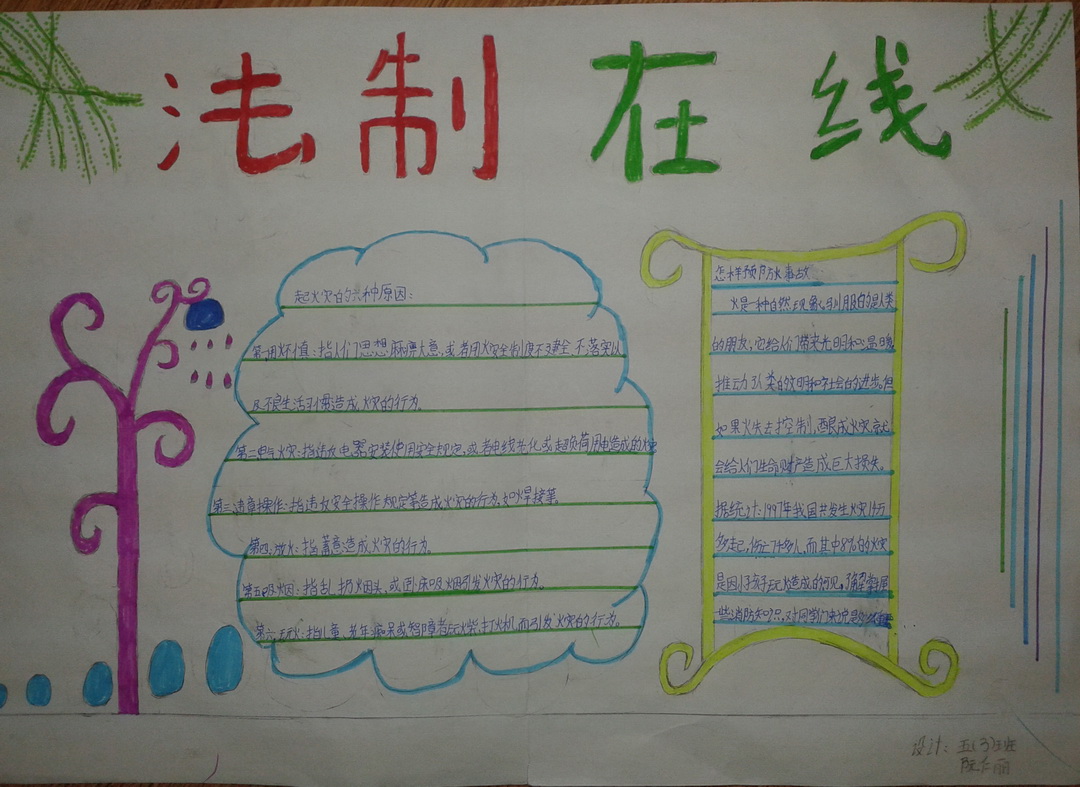 法制在线
起火灾的六种原因：
第一用火不慎：指人们思想麻痹大意，或者用火安全制度不建全、不落实以
及不良生活习惯造成火灾的行为。
第二电气火灾：指违反电器安装使用安全规定，或者电线老化或超负荷用电造成的火
第三违章操作：指违反安全操作规定等造成火灾的行为，如焊接等。
第四：放火：指蓄意造成火灾的行为。
第五吸烟：指乱扔烟头、或卧床吸烟引发火灾的行为。
第六：玩火：指儿童、老年痴呆或智障者玩火柴、打火机而引发火灾的行为。
怎样预防火事故
火是一种自然现象，驯服的火是人类
的朋友；它给人们带来光明和温暖
推动了人类的文明和社会的进步。但
如果火失去控制，酿成火灾就
会给人们生命财产造成巨大损失。
据统计：1997年我国共发生火灾14万
多起，伤亡7千多人，而其中8%的火灾
是因小孩子玩火造成的
一些消防知识，对同学们来说是
设计：五(3)班